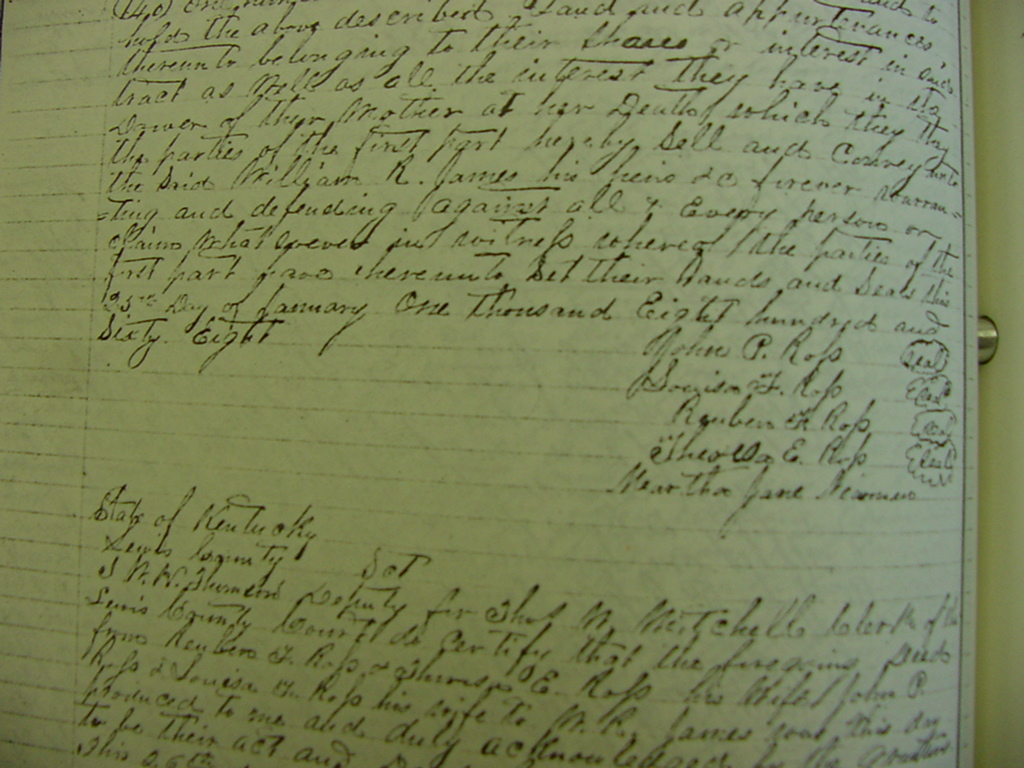 hold the above described Land and appurtenances
thereunto belonging to their Shares or interest in said
tract as Well as all the interest they have in the
Dower of their Mother at her Death which they the
the parties of the first part hereby Sell and Convey unto
the Said William R. James his heirs &c forever Warran=
=ting and defending against all & Every person or
Claim What Soever in witness whereof the parties of the
first part have hereunto Set their Hands and Seals this
25th Day of January One thousand Eight hundred and
Sixty Eight
John P. Ross Seal
Louisa F. Ross Seal
Reuben F. Ross Seal
E. Ross Seal
Martha Jane
State of Kentucky
Lewis County Sct
I W. W. Deputy for Thos M. Mitchell Clerk of the
Lewis County Court do Certify that the foregoing Deed
from Reuben F. Ross & E. Ross his Wife John P.
Ross & Louisa F. Ross his wife to W. R. James was this day
produced to me and duly acknowledged by the grantors
to be their act and
this 26th